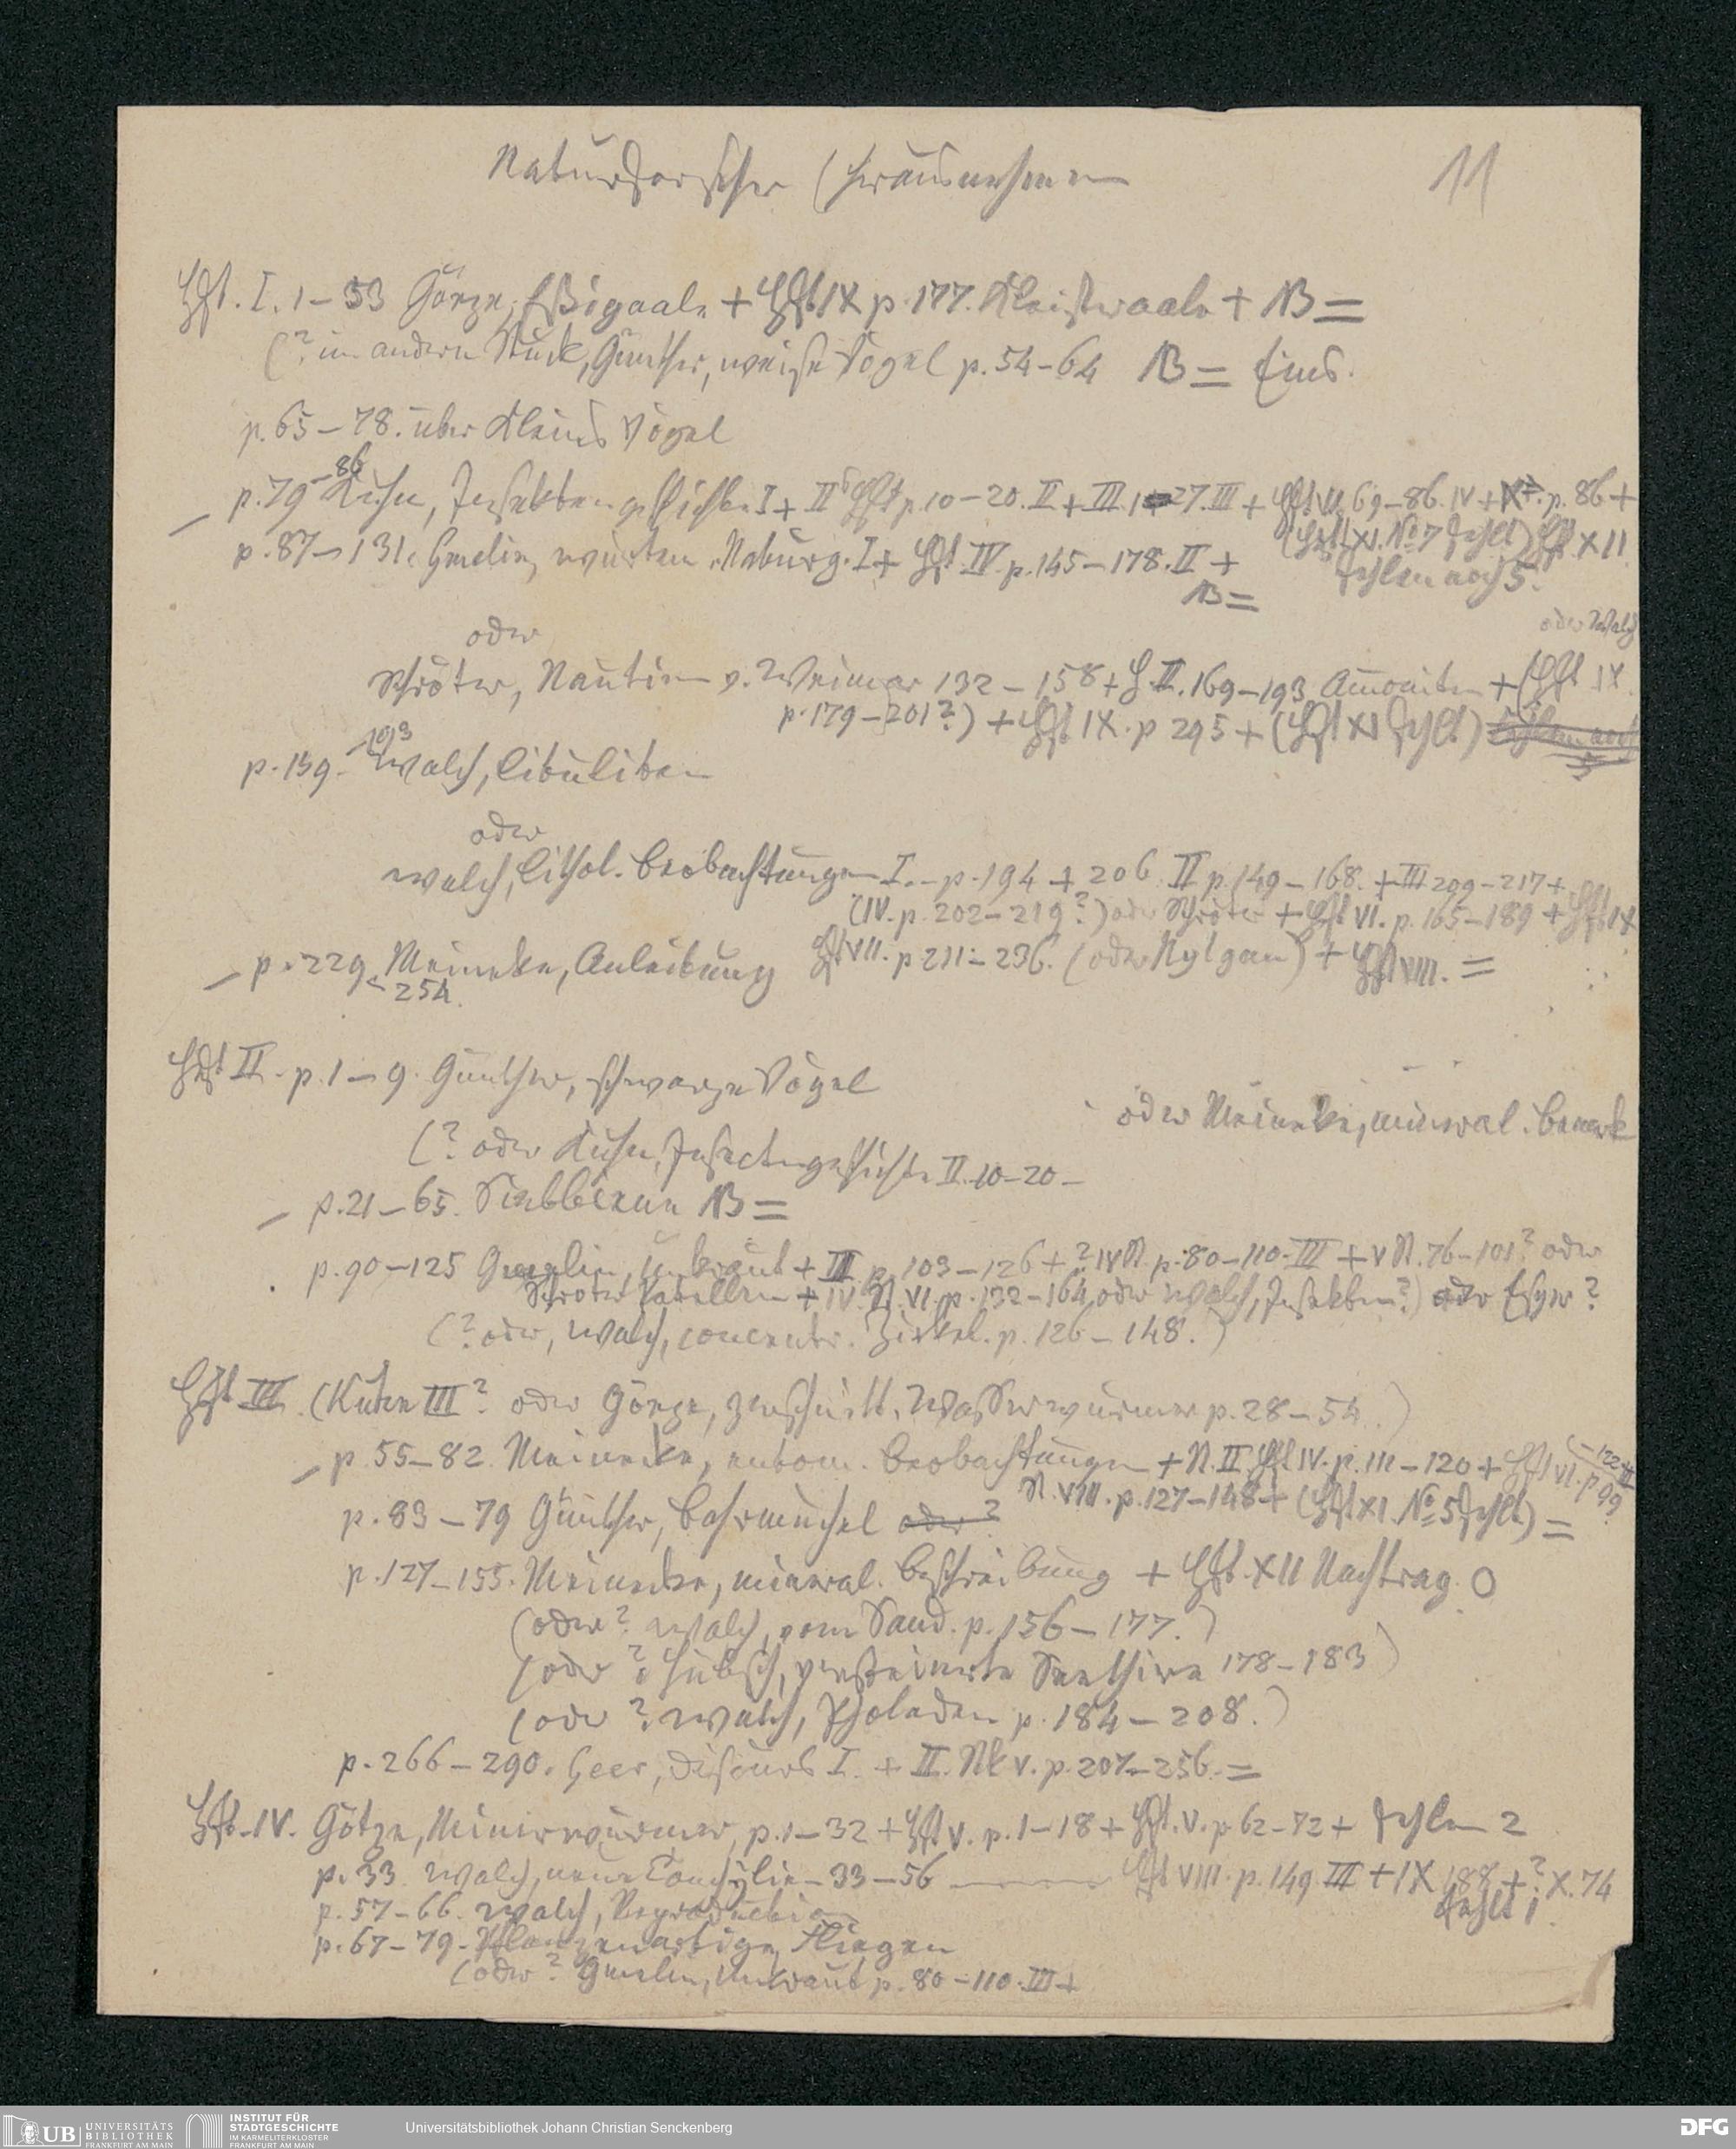 Naturforscher (herausnehmen
11
Hft. I. 1 – 53 Götze, Eßigaale + Hft IX p. 177. Kleisteraale + NB =
(? im andern Stück, Günther, weiße Vögel p. 54 – 64 NB =
p. 65 – 78. über Kleins Vögel
p. 79 – 86 Kühn, Insektengeschichte I + II Hft p. 10 – 20. II + III 27. III + Hft VI 69 – 86. IV + p. 86 +
(Hft XI. No 7 fehlt) Hft XII
p. 87 – 131. Gmelin, würtem. Naturg. I + Hft. IV. p. 145 – 178. II +
fehlen noch 5.
NB =
oder
oder Walch
Schröter, Nautien v. Weimar 132 – 158 + H. II. 169 – 193 Ammoniten + (Hft IX.
p. 179 – 201?) + Hft IX. p 295 + (Hft XI fehlt) fehlen noch
5
p. 159. – 193 Walch, Lituliten
oder
Walch, Lithol. Beobachtungen I. – p. 194 + 206 II p. 149 – 168. + III 209 – 217 + Hft
(IV. p. 202 – 219?) oder Schröter + Hft VI. p. 165 – 189 + Hft IX
p. 229 – 254. Meineke, Anleitung Hft VII. p 211 – 236. (oder Nylgau) + Hft VIII. =
Hft II. p. 1 – 9. Günther, schwarze Vögel
oder Meineke, mineral. Bemerk
(? oder Kühn, Insectengeschichte II. 10 – 20 –
p. 21 – 65. NB =
p. 90 – 125 Gmelin, Unkraut + III p. 103 – 126 + ? IV N. p. 80 – 110. III + V N. 76 – 101? oder
Schröter Patellen + IV. N. VI. p. 132 – 164 oder Walch, Insekten?) oder Esper?
(? oder, Walch, concentr. Zirkel. p. 126 – 148.)
Hft III. (Kühn III? oder Götze, zerschnitt. Wasserwürmer p. 28 – 54.)
p. 55 – 82. Meineke, entom. Beobachtungen + N. II. Hft IV. p. 111 – 120 + Hft VI. p 99 – 122
N. VIII. p. 127 – 148 + (Hft XI. No 5 fehlt) =
p. 83 – 79 Günther, Bohrmuschel oder?
p. 127 – 155. Meineke, mineral. Beschreibung + Hft. XII Nachtrag. O
(oder? Walch, vom Sand. p. 156 – 177.)
(oder? Hübsch, versteinerte Seethiere 178 – 183)
(oder? Walch, Pholaden p. 184 – 208.)
p. 266 – 290. Geer, Discurs I. + II. V. p. 207 – 256. =
Hft. IV. Götze, Minirwürmer, p. 1 – 32 + Hft V. p. 1 – 18 + Hft. V. p. 62 – 72 + fehlen 2
p. 33. Walch, neue Conchylien – 33 – 56 Hft VIII. p. 149 III + IX 188 + ? X. 74
fehlt 1
p. 57 – 66. Walch, Reproduction
p. 67 – 79. Pflanzenartige Fliegen
(oder? Gmelin, Unkraut p. 80 – 110. III +
UB UNIVERSITÄTS BIBLIOTHEK FRANKFURT AM MAIN
INSTITUT FÜR STADTGESCHICHTE IM KARMELITERKLOSTER FRANKFURT AM MAIN
Universitätsbibliothek Johann Christian Senckenberg
DFG